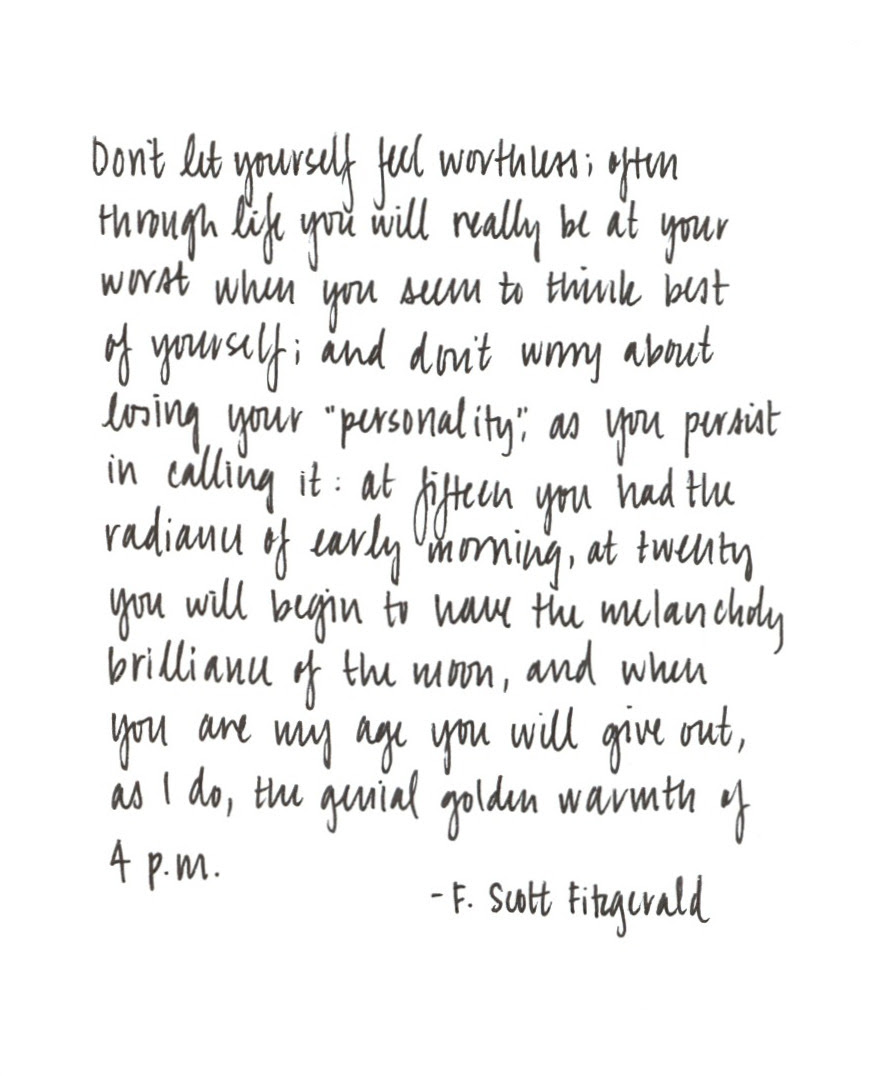 Don't let yourself feel worthless; often
through life you will really be at your
worst when you seem to think best
of yourself; and don't worry about
losing your "personality", as you persist
in calling it: at fifteen you had the
radiance of early morning, at twenty
you will begin to have the melancholy
brilliance of the moon, and when
you are my age you will give out,
as I do, the genial golden warmth of
4 p.m.
- F. Scott Fitzgerald